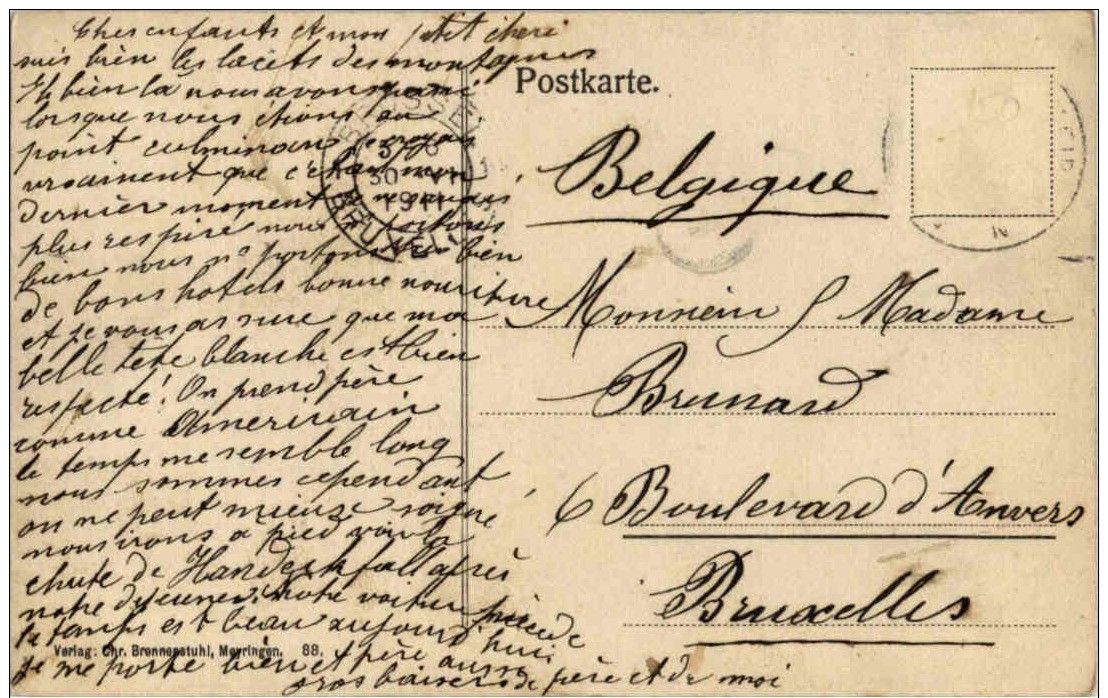 Chers enfants et mon petit cheri
suis bien les lacets des montagnes
Eh bien là nous avons passé
lorsque nous étions au
point culminant je croyais
vraiment que c'était mon
dernier moment je n'avais
plus respiré nous
bien nous n° portons très bien
de bons hotels bonne nouriture
et je vous assure que ma
belle tete blanche est bien
respecté! On prend père
comme Americain
le temps me semble long
nous sommes cependant
on ne peut mieuxe soigné
nous irons a pied voir la
chute de Handeckfall après
notre dejeuner notre voiture
le temps est beau aujourd'hui
je me porte bien et père aussi
gros baisers de père et de moi
Verlag: Chr. Brennenstuhl, Meyringen. 88.
Postkarte.
Belgique
Monsieur & Madame
Brunard
6 Boulevard d'Anvers
Bruxelles